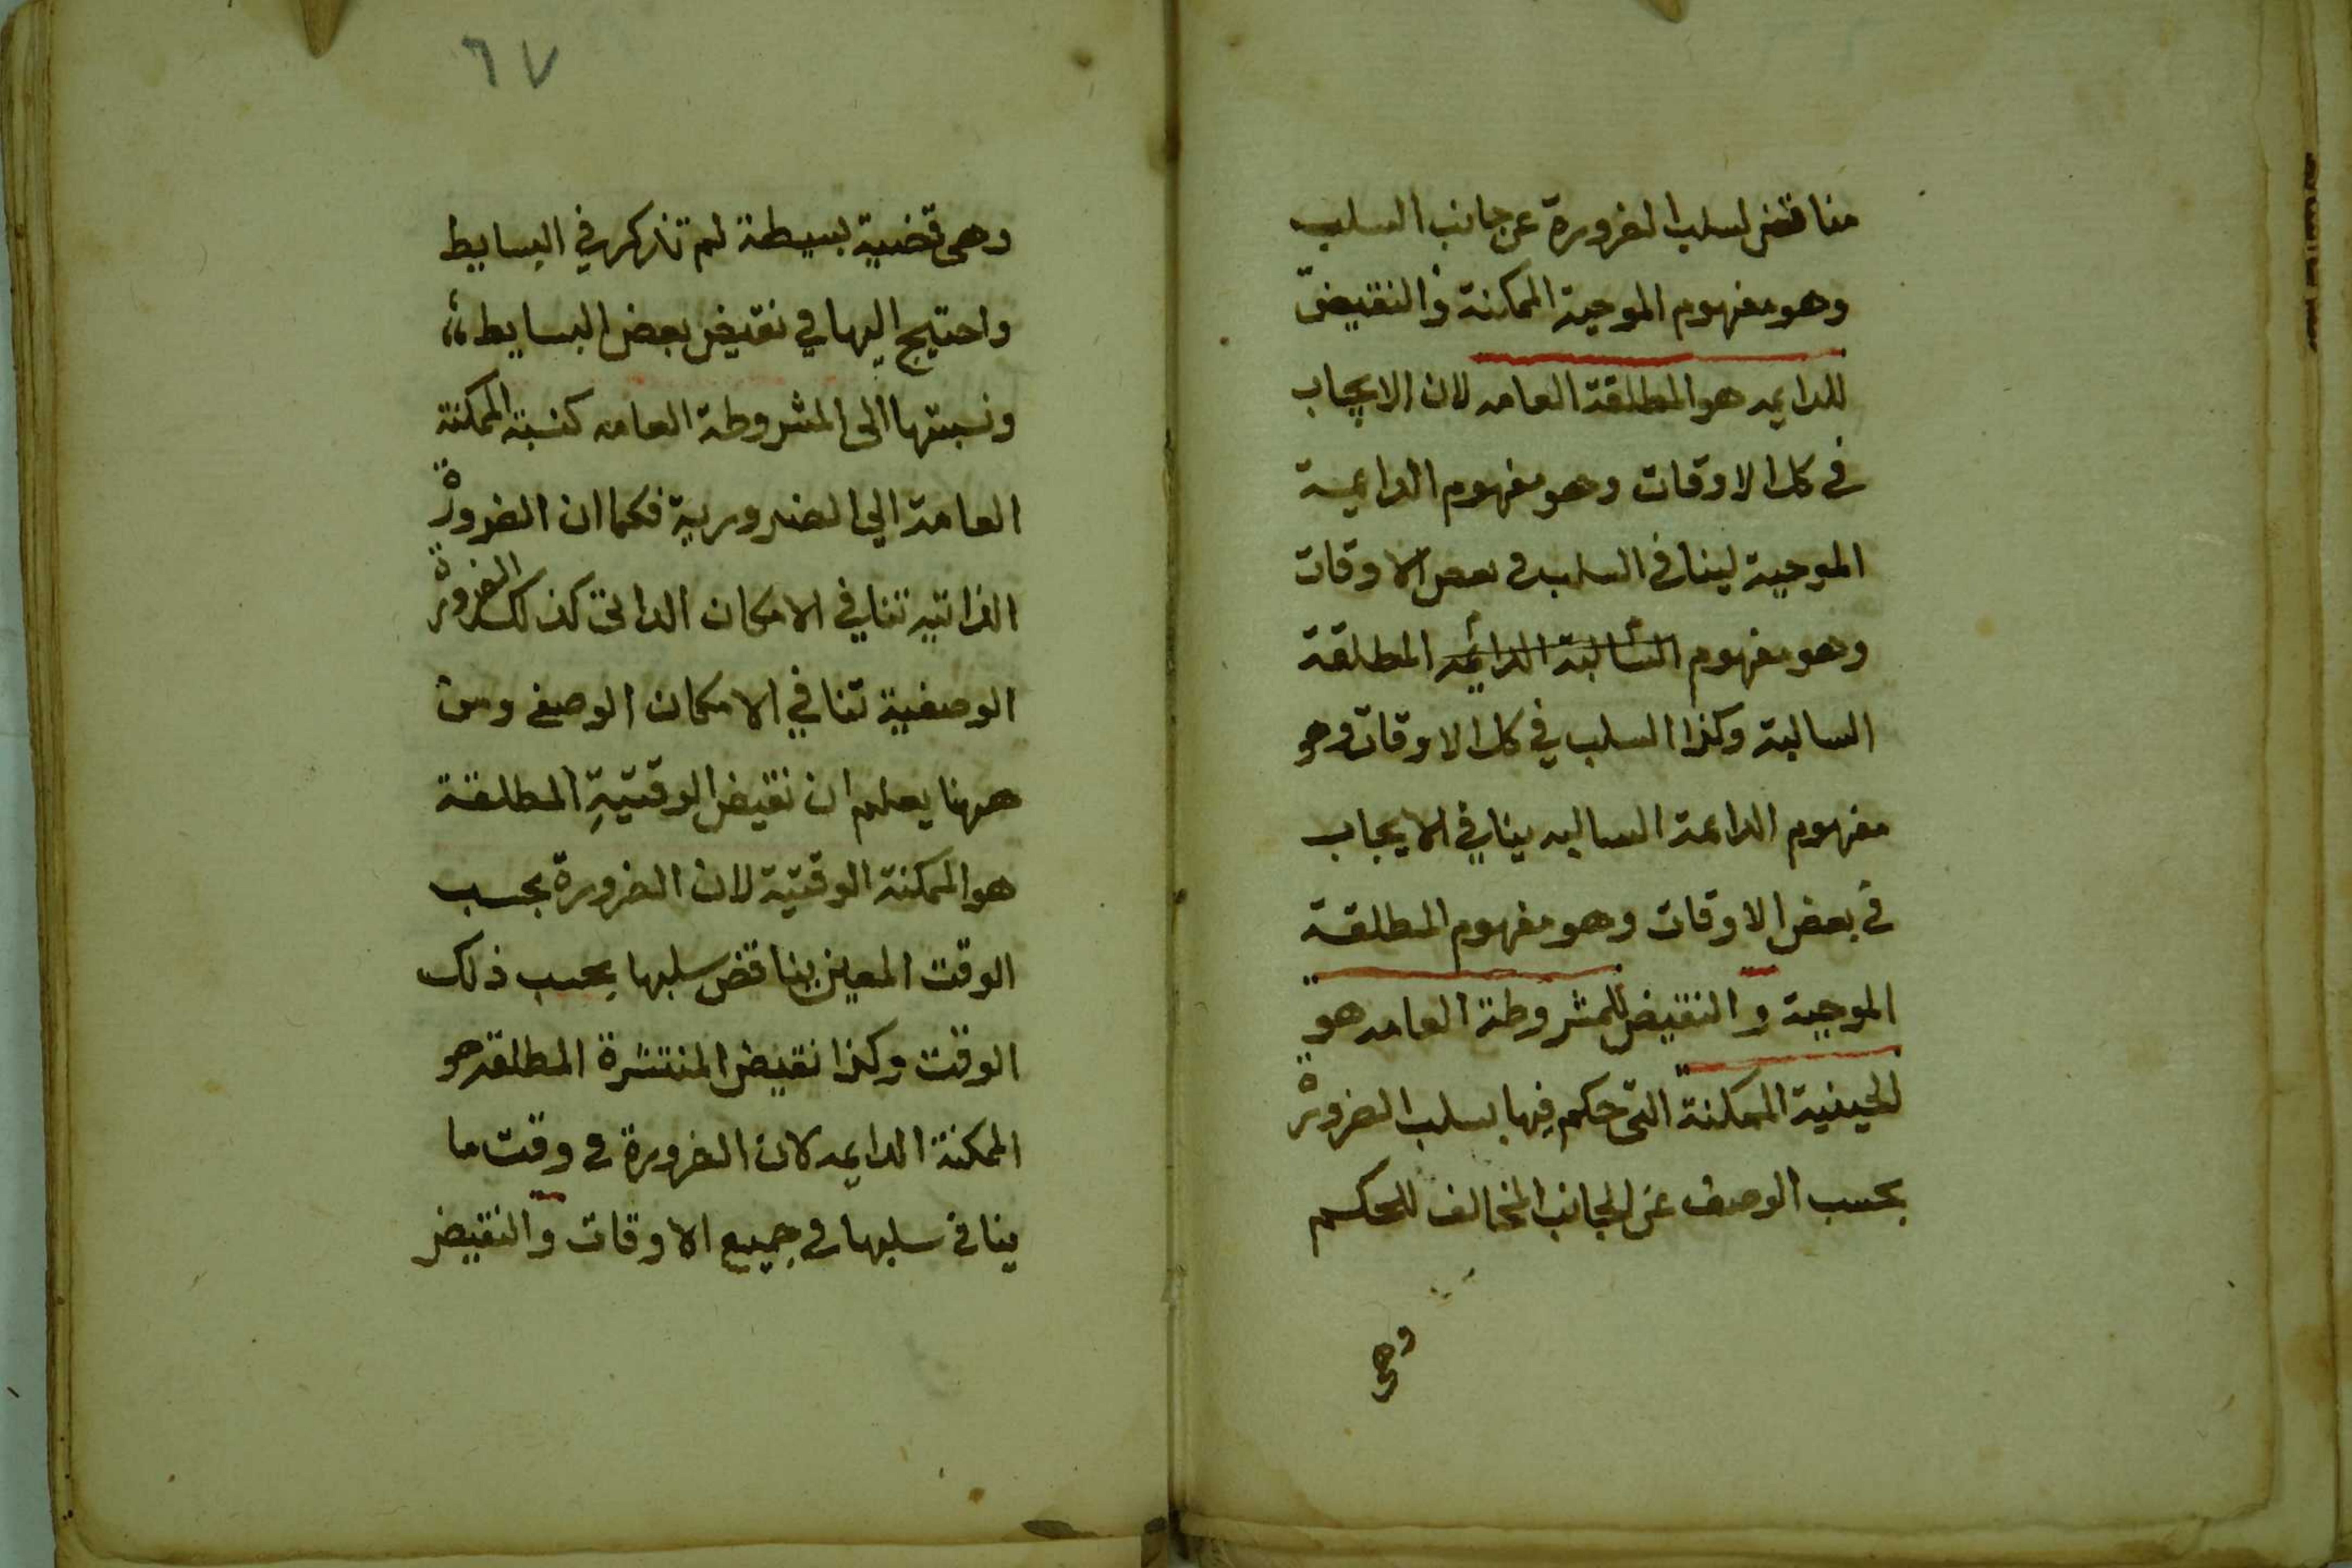 مناقض لسلب الضرورة عن جانب السلب
وهو مفهوم الموجبة الممكنة والنقيض
للدايمه هو المطلقة العامه لان الايجاب
في كل الاوقات وهو مفهوم الدايمة
الموجبة لينافي السلب في بعض الاوقات
وهو مفهوم السالبة الدائمه المطلقة
السالبة وكذا السلب في كل الاوقات وهو
مفهوم الدايمة السالبه ينافي الايجاب
في بعض الاوقات وهو مفهوم المطلقة
الموجبة والنقيض للمشروطة العامه هو
الحينية الممكنة التي حكم فيها بسلب الضرورة
بحسب الوصف عن الجانب المخالف للحكم
وهي
٦٧
وهي قضية بسيطة لم تذكر في البسايط
واحتيج اليها في نقيض بعض البسايط
ونسبتها الى المشروطة العامه كنسبة الممكنة
العامة الي الضرورية فكما ان الضرورة
الذاتيه تنافي الامكان الذاتي كذلك الضرورة
الوصفية تنافي الامكان الوصفي ومن
ههنا يعلم ان نقيض الوقتيةِ المطلقة
هو الممكنة الوقتية لان الضرورة بحسب
الوقت المعين يناقض سلبها بحسب ذلك
الوقت وكذا نقيض المنتشرة المطلقه هو
الممكنة الدايمه لان الضرورة في وقت ما
ينافي سلبها في جميع الاوقات والنقيض